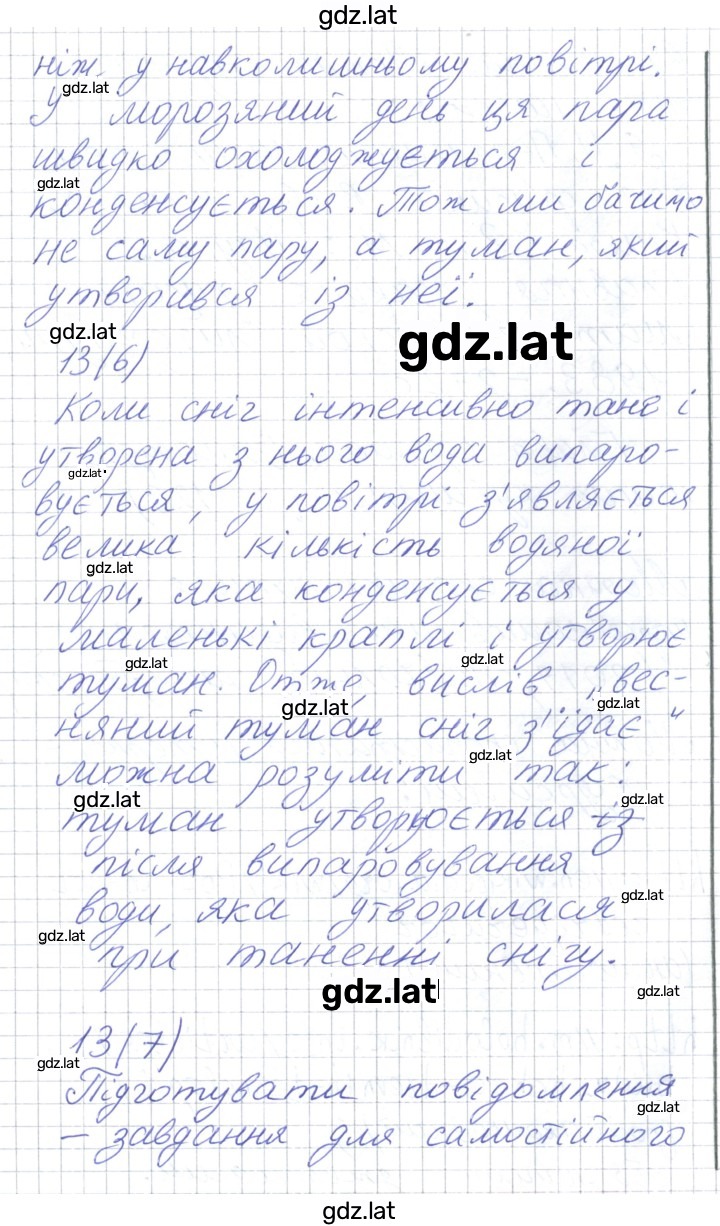 gdz.lat
ніж у навколишньому повітрі.
gdz.lat
У морозяний день ця пара
швидко охолоджується і
gdz.lat
конденсується. Тож ми бачимо
не саму пару, а туман, який
утворився із неї.
gdz.lat
gdz.lat
13(6)
Коли сніг інтенсивно тане і
утворена з нього вода випаро-
gdz.lat
вується, у повітрі з'являється
велика кількість водяної
gdz.lat
пари, яка конденсується у
маленькі краплі і утворює
gdz.lat
gdz.lat
туман. Отже, вислів „вес-
gdz.lat
gdz.lat
няний туман сніг з'їдає"
gdz.lat
можна розуміти так:
gdz.lat
gdz.lat
туман утворюється із
після випаровування
gdz.lat
води, яка утворилася
gdz.lat
при таненні снігу.
gdz.lat
gdz.lat
13(7)
gdz.lat
Підготувати повідомлення
gdz.lat
– завдання для самостійного
gdz.lat